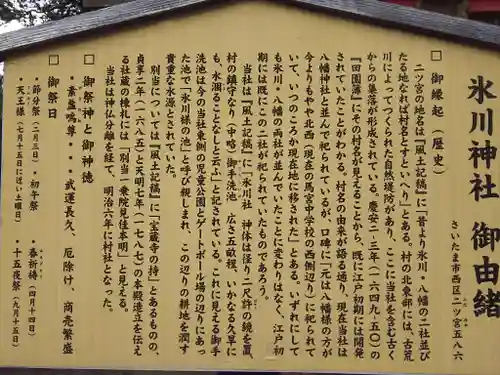 氷川神社 御由緒
さいたま市西区二ツ宮五八六
□ 御縁起（歴史）
二ツ宮の地名は『風土記稿』に「昔より氷川・八幡の二社並び
たる地なれば村名とすといへり」とある。村の北東部には、古荒
川によってつくられた自然堤防があり、ここに当社を含む古く
からの集落が形成されている。慶安二・三年（一六四九・五〇）の
『田園簿』にその村名が見えることから、既に江戸初期には開発
されていたことがわかる。村名の由来が語る通り、現在当社は
八幡神社と並んで祀られているが、口碑に「元は八幡様の方が
今よりもやや北西（現在の馬宮中学校の西側辺り）に祀られて
いて、いつのころか現在地に移された」とある。いずれにして
も氷川・八幡の両社が並んでいたことに変わりはなく、江戸初
期には既にこの二社が祀られていたものであろう。
当社は『風土記稿』に「氷川社 神体は径り二尺許の鏡を置、
村の鎮守なり（中略）御手洗池 広さ五畝程、いかなる久旱に
も、水涸ることなしと云ふ」と記されている。これに見る御手
洗池は今の当社東側の児童公園とゲートボール場の辺りにあっ
た池で「氷川様の池」と呼び親しまれ、この辺りの耕地を潤す
貴重な水源とされていた。
別当については『風土記稿』に「宝蔵寺の持」とあるものの、
貞享二年（一六八五）と天明七年（一七八七）の本殿造立を伝え
る社蔵の棟札には「別当一乗院見住本明」と見える。
当社は神仏分離を経て、明治六年に村社となった。
□ 御祭神と御神徳
・素盞嗚尊・・・武運長久、厄除け、商売繁盛
□ 御祭日
・節分祭（二月三日）・初午祭 ・春祈祷（四月十四日）
・天王様（七月十五日にほい土曜日）・十五夜祭（九月十五日）